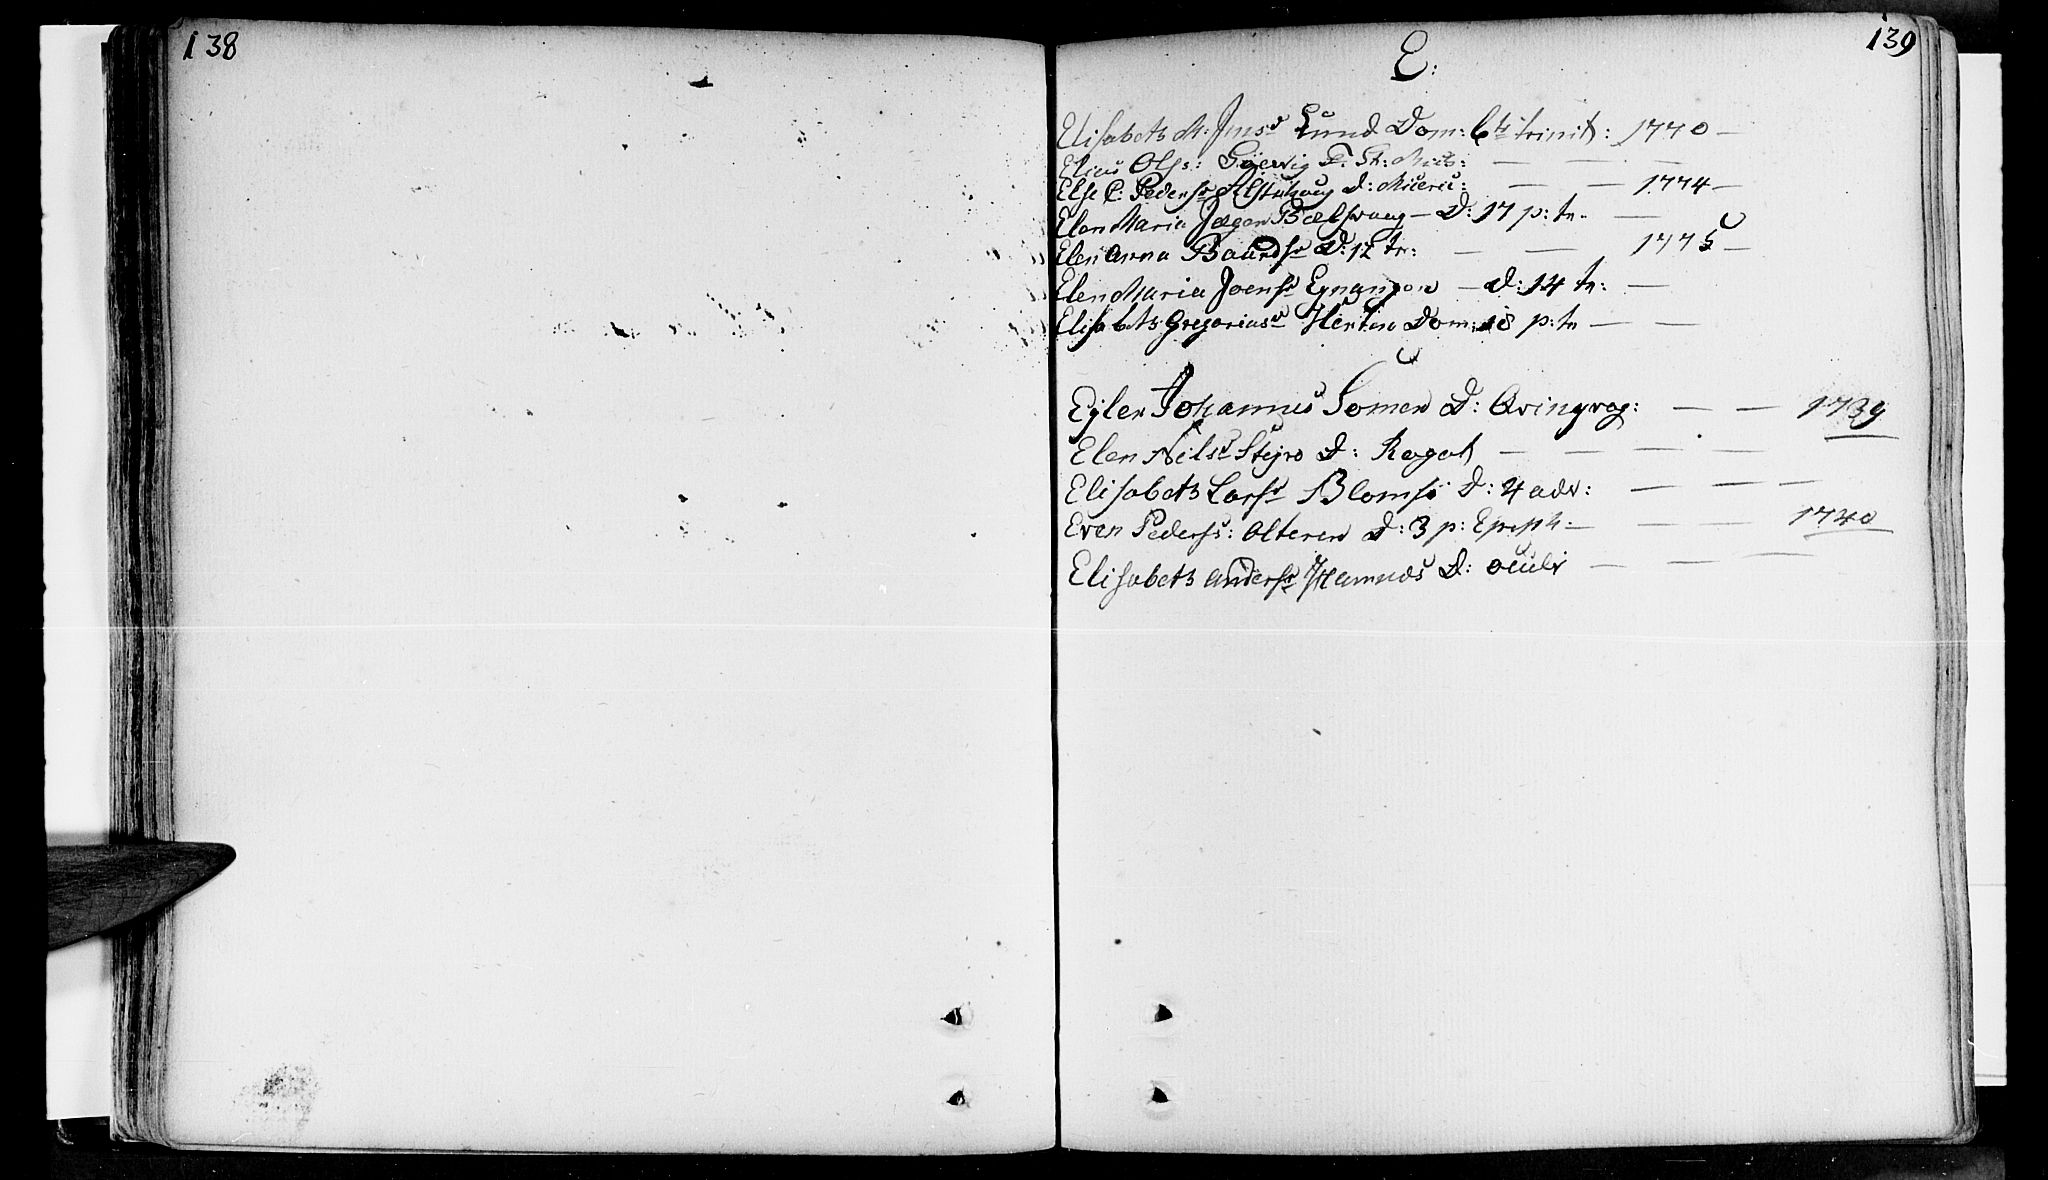 138
139
E:
Elisabeth M: Jensd Lund Dom: 6te trinit: 1770 —
Elias Olss: F: St: Mich: — — —
Else C: Pedersd Alstahoug D: Misric: — — 1774 —
Elen Maria Jæger Belsvaag — D: 17 p: tr. —
Elen Anna Baardsd D: 12 tr: — — 1775 —
Elen Maria Joensd — D: 14 tr: —
Elisabeth Gregoriusd Dom: 18 p: tr — —
Ejler Johannes Somen D: Qvinqvag: — — 1739
Elen Nilsd Stejro D: Rogat — — — —
Elisabeth Larsd Blomsö D: 4 adv: — — —
Even Peders: Olteren D: 3 p: Epiph: — — — 1740
Elisabeth Andersd Hamnæs D: oculi — — —